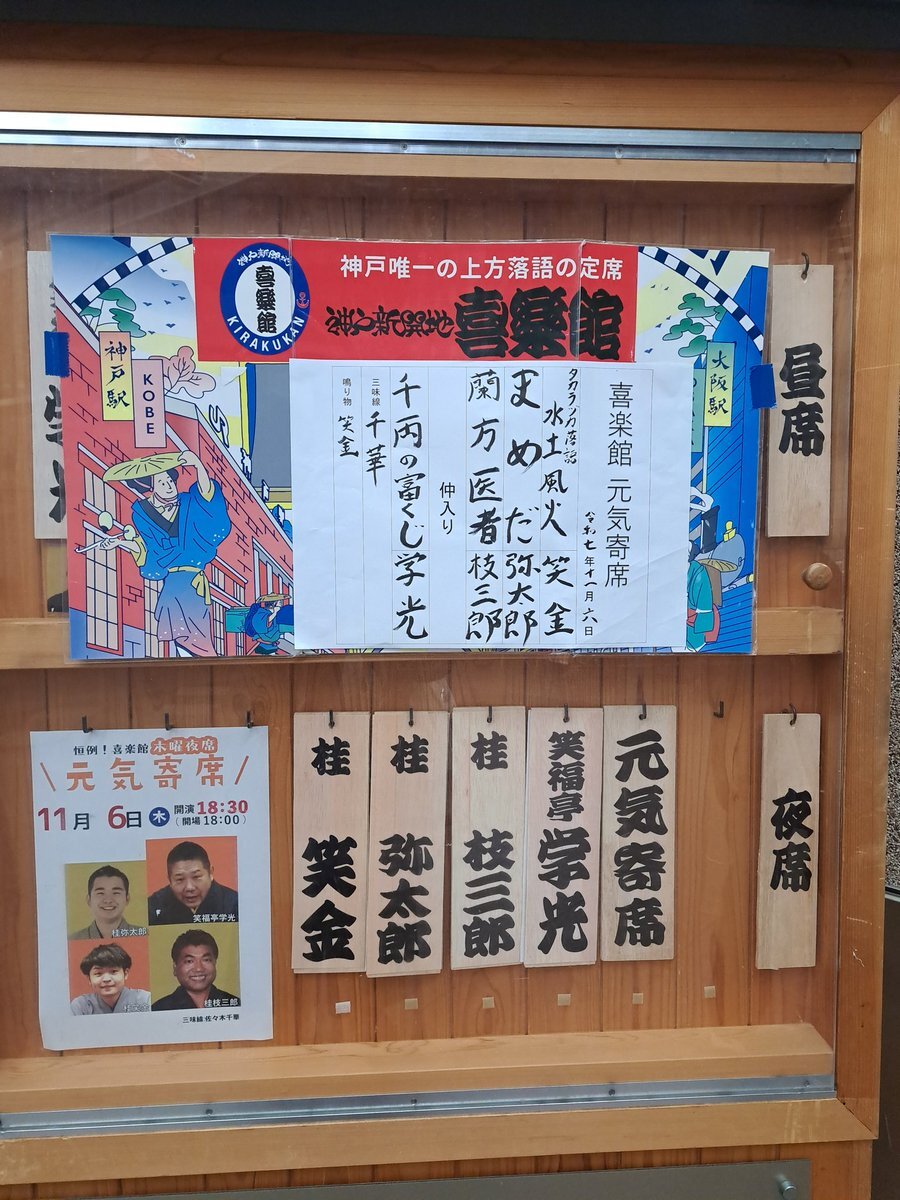 神戸新開地
喜楽館
KIRAKUKAN
神戸唯一の上方落語の定席
神戸新開地 喜楽館
神戸駅
KOBE
大阪駅
喜楽館 元気寄席
令和七年十一月六日
タカラヅカ落語
水土風火 笑金
まめだ 弥太郎
蘭方医者 枝三郎
仲入り
千両の富くじ 学光
三味線 千華
鳴り物 笑金
昼席
恒例!喜楽館 木曜夜席
\元気寄席/
11月 6日 木 開演 18:30
(開場 18:00)
桂弥太郎
笑福亭学光
桂枝三郎
三味線 佐々木千華
夜席
元気寄席
笑福亭 学光
桂 枝三郎
桂 弥太郎
桂 笑金